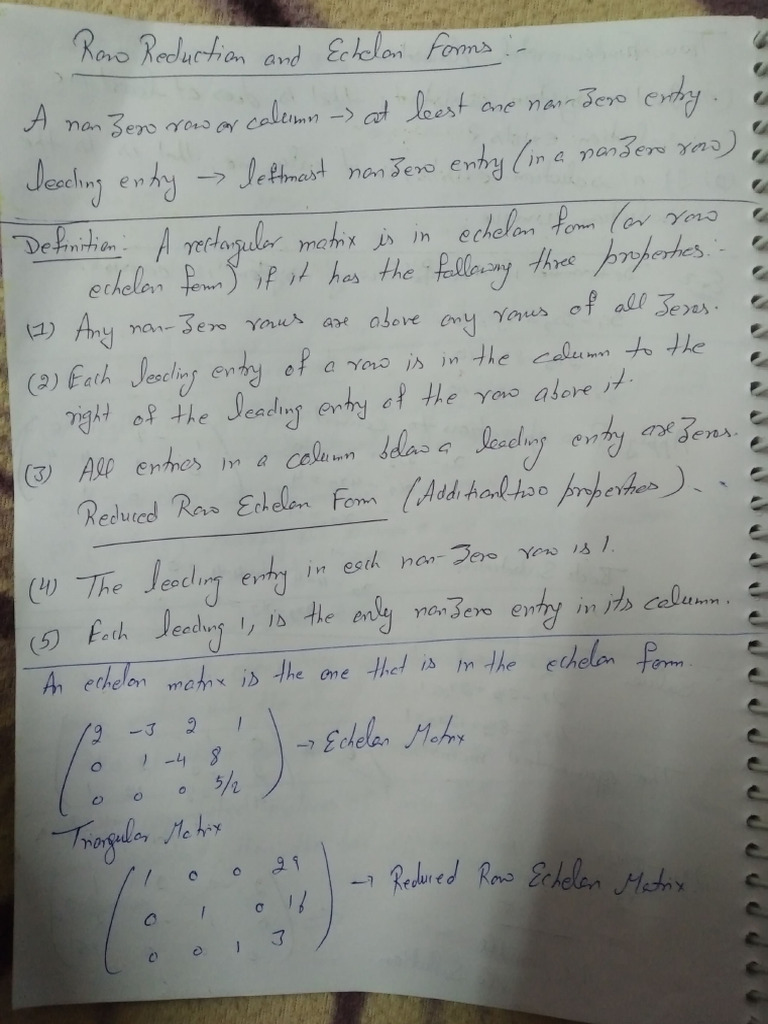 Row Reduction and Echelon Forms :-
A non zero row or column → at least one non-zero entry.
leading entry → leftmost non zero entry (in a non zero row)
Definition: A rectangular matrix is in echelon form (or row
echelon form) if it has the following three properties:-
(1) Any non-zero rows are above any rows of all zeros.
(2) Each leading entry of a row is in the column to the
right of the leading entry of the row above it.
(3) All entries in a column below a leading entry are zeros.
Reduced Row Echelon Form (Additional two properties).
(4) The leading entry in each non-zero row is 1.
(5) Each leading 1, is the only non zero entry in its column.
An echelon matrix is the one that is in the echelon form.
2 -3 2 1
0 1 -4 8 → Echelon Matrix
0 0 0 5/2
Triangular Matrix
1 0 0 29
0 1 0 16 → Reduced Row Echelon Matrix
0 0 1 3